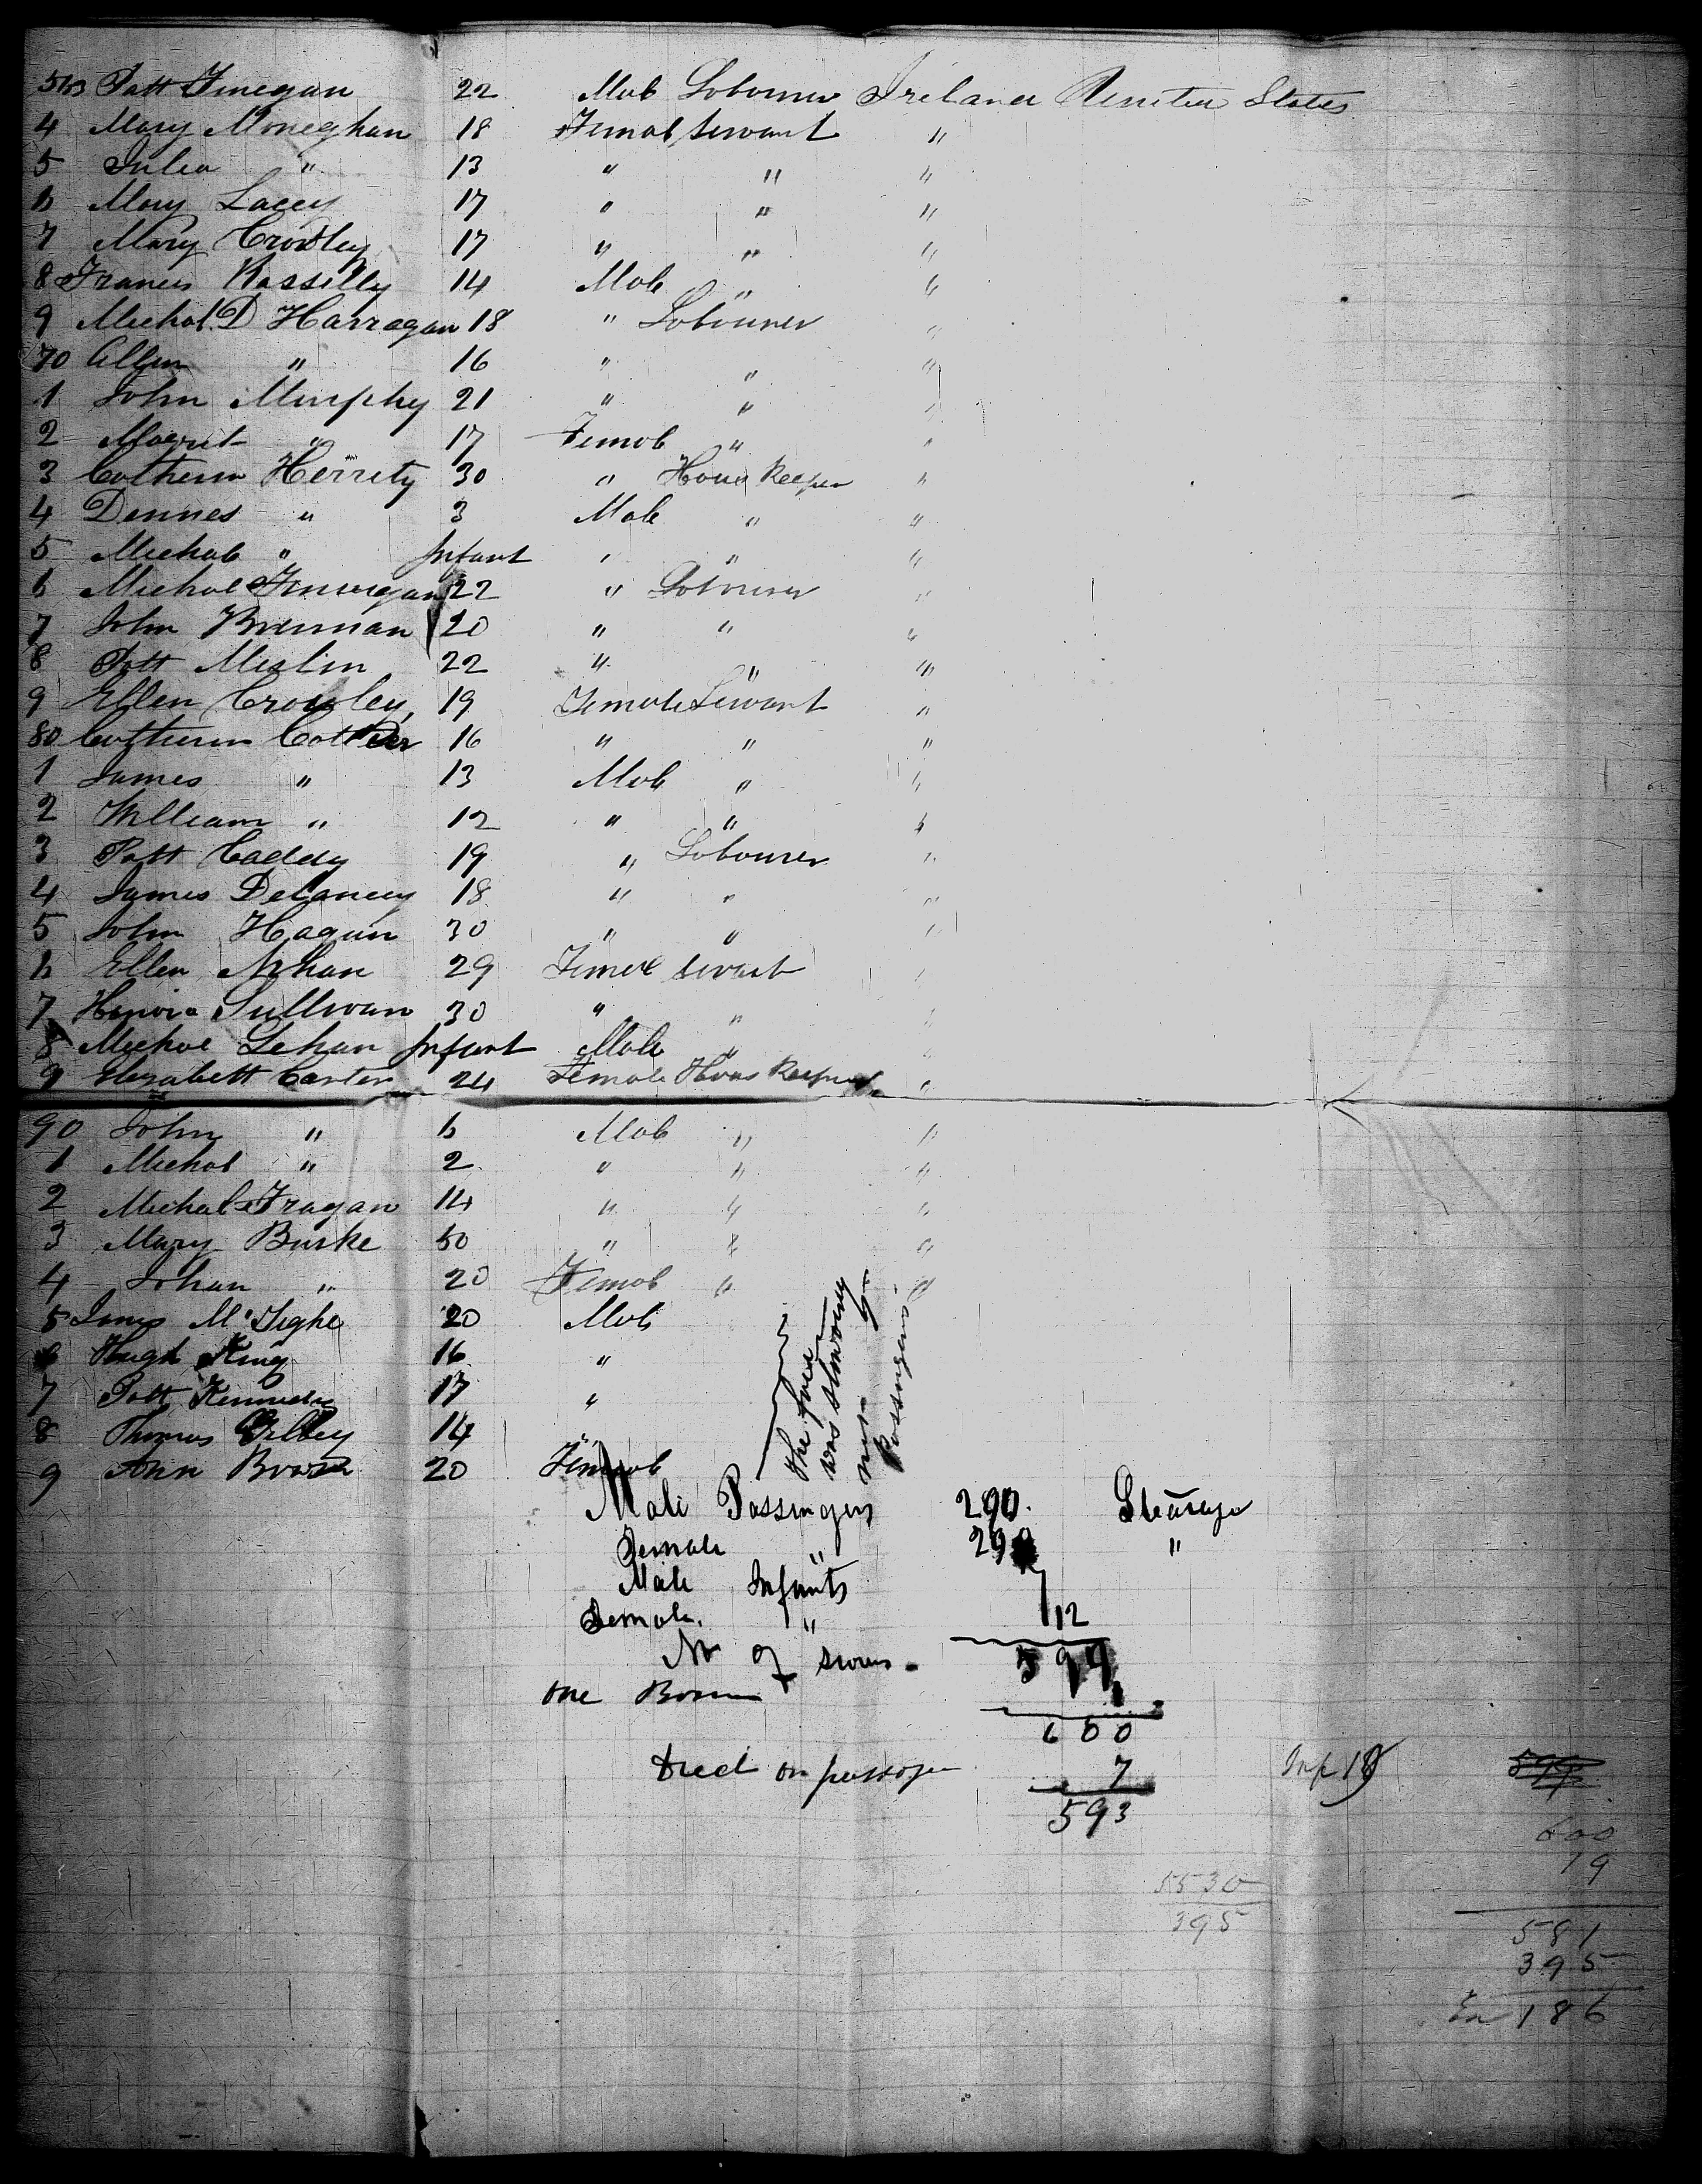 563 Patt Finegan 22 Male Labourer Ireland United States
4 Mary Moneghan 18 Female Servant "
5 Julia " 13 " " "
6 Mary Lacey 17 " " "
7 Mary Crowley 17 " " "
8 Francis Rassilly 14 Male " "
9 Michal D Harragan 18 " Labourer "
70 Allen " 16 " " "
1 John Murphy 21 " " "
2 Magrit " 17 Female " "
3 Catherin Herrity 30 " House Keeper "
4 Dennes " 3 Male " "
5 Michale " Infant " " "
6 Michal Finnegan 22 " Labourer "
7 John Brennan 20 " " "
8 Patt Meslin 22 " " "
9 Ellen Crowley 19 Female Servant "
80 Catherin Cotter 16 " " "
1 James " 13 Male " "
2 William " 12 " " "
3 Patt Caddy 19 " Labourer "
4 James Delancey 18 " " "
5 John Hagan 30 " " "
6 Ellen Nehan 29 Female Servant "
7 Honora Sullivan 30 " " "
8 Michal Lehan Infant Male " "
9 Elezabett Carter 24 Female Hous Keeper "
90 John " 6 Male " "
1 Michal " 2 " " "
2 Michal Fragan 14 " " "
3 Mary Burke 50 " " "
4 Johan " 20 Female " "
5 James McTighe 20 Male
6 Hugh King 16 "
7 Patt Kennedy 17 "
8 Thomas Gilbey 14 "
9 Ann 20 Female
the five
was stowaway
Passengers
Male Passingers 290 Stearage
Female " 29 "
Male Infants
Female " 12
No of 599
one Born 1
600
Died on passage 7
593
Inf 19
600
19
5530
395
581
395
186